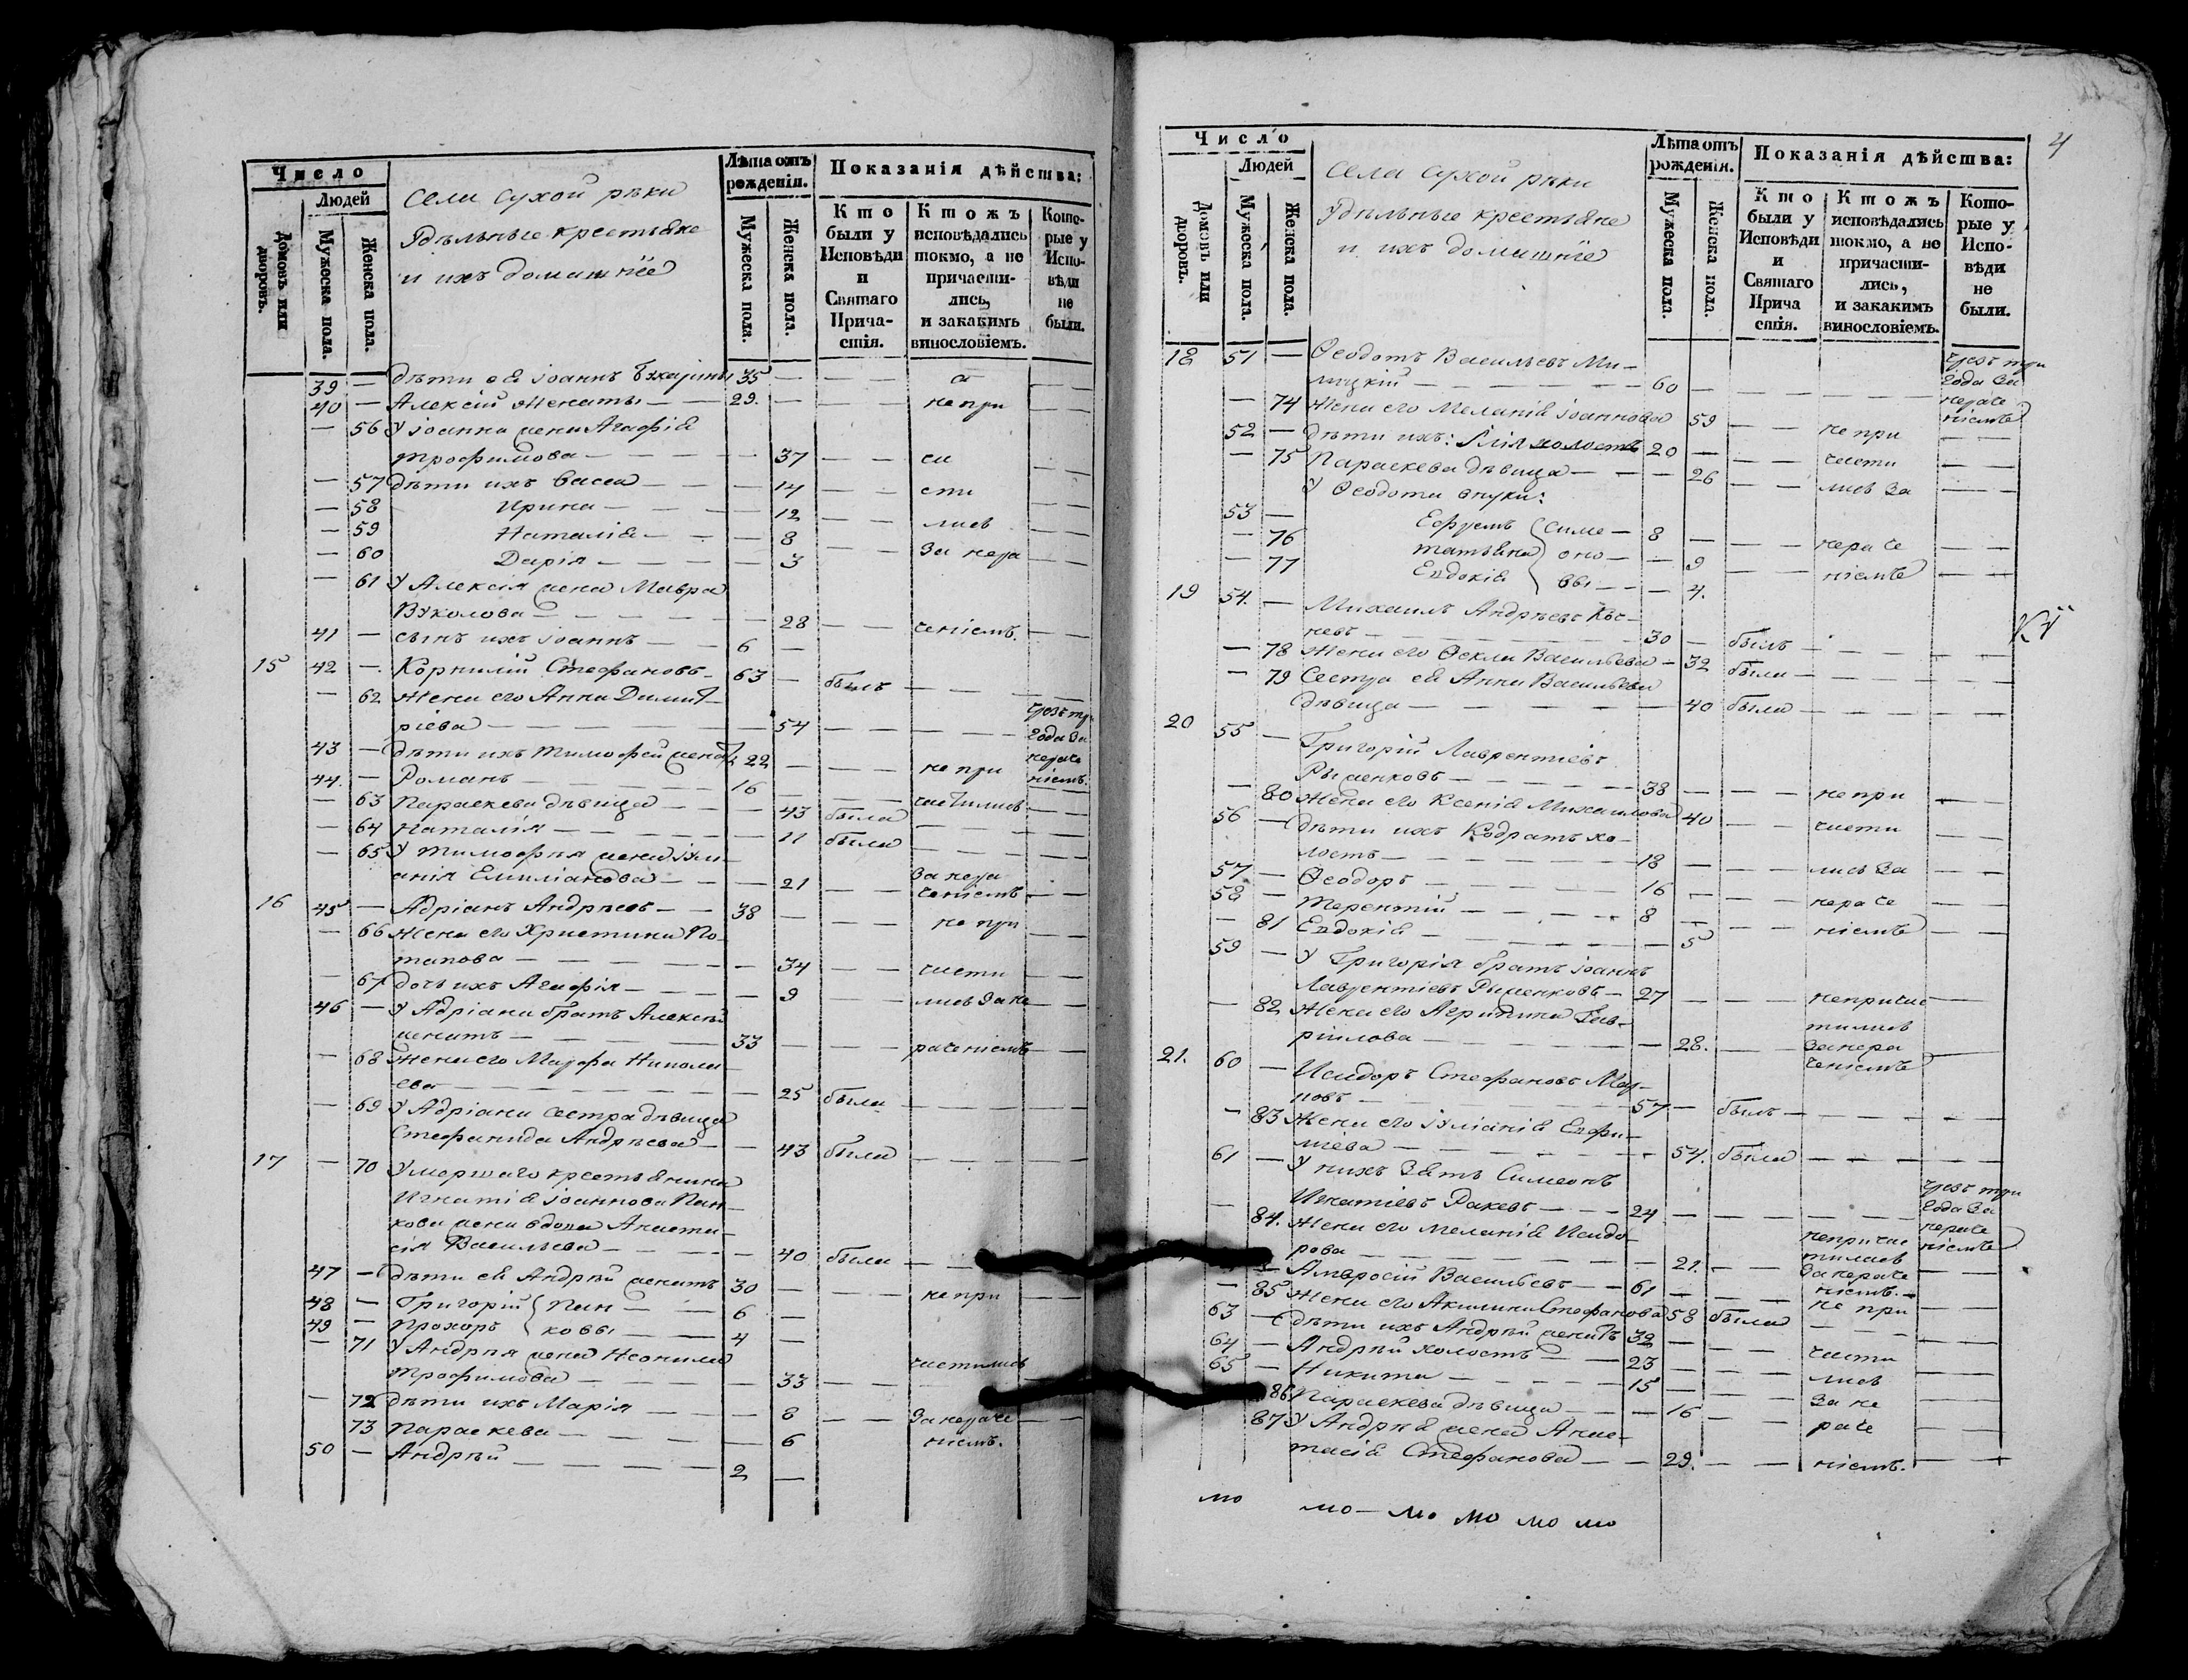 Число
Людей
Домовъ или дворовъ.
Мужеска пола.
Женска пола.
села сухой рѣки
Удѣльные крестьяне
и ихъ домашнїе
Лѣта отъ рожденія.
Мужеска пола.
Женска пола.
Показанія дѣйства:
Кто были у Исповѣди и Святаго Прича-стія.
Ктожъ исповѣдались токмо, а не причасти-лись, и закакимъ винословіемъ.
Кото-рые у Испо-вѣди не были.
39 — дѣти ея іоаннъ 35 —
40 — Алексїй женаты — 29. — не при
— 56 У іоанна жена Агафія
трофимова — 37 — ча
— 57 дѣти ихъ Васса — 14 — сти
— 58 Ирина — 12 — лись
— 59 Наталія — 8 — За нера
— 60 Дарія — 3
— 61 У Алексія жена Мавра
Вуколова — 28 — ченіемъ.
41 — сынъ ихъ іоаннъ — 6 —
15 42 — Корнилій Стефановъ — 63 — былъ
— 62 Жена его Анна Димит-
ріева — 54 — чрезъ три
года за
43 — дѣти ихъ тимофей женатъ 22 — не при нераче
44. — Романъ — 16 — ніемъ.
— 63 Параскева дѣвица — 43 была — частились
— 64 Наталія — 11 была
— 65 У тимофея жена іули-
анія Емиліанова — 21 — За нера
ченіемъ
16 45 — Адріанъ Андреевъ — 38 — не при
— 66 Жена его Христина По-
тапова — 34 — части
— 67 дочь ихъ Агафія — 9 — лись За не
46 — У Адріана братъ Алексѣй
женатъ — 33 — раченіемъ
— 68 Жена его Марфа Никола
ева — 25 была
— 69 У Адріана сестра дѣвица
Стефанида Андреева — 43 была
17 — 70 Умершаго крестьянина
Игнатія іоаннова Пан-
кова жена вдова Анаста-
сія Васильева — 40 была
47 — дѣти ея Андрѣй женатъ 30 — не при
48 — Григорій Пан — 6 —
49 — Прохоръ ковы — 4 —
— 71 У Андрея жена Неонила
трофимова — 33 — частились
— 72 дѣти ихъ Марія — 8 — За нераче
73 Параскева — 6 — ніемъ.
50 — Андрѣй — 2 —
4
Число
Людей
Домовъ или дворовъ.
Мужеска пола.
Женска пола.
села сухой рѣки
Удѣльные крестьяне
и ихъ домашнїе
Лѣта отъ рожденія.
Мужеска пола.
Женска пола.
Показанія дѣйства:
Кто были у Исповѣди и Святаго Прича стія.
Ктожъ исповѣдались токмо, а не причасти-лись, и закакимъ винословіемъ.
Кото-рые у Испо-вѣди не были.
18 51 — Ѳеодотъ Васильевъ Ми- чрезъ три
лицкій — 60 — года за
нераче
— 74 Жена его Меланія іоаннова 59 — не при ніемъ
52 — дѣти ихъ: Илія холостъ 20 — части
— 75 Параскева дѣвица — 26 — лись За
У Ѳеодота внуки:
53 — Ефремъ Симе — 8 — нераче
— 76 татьяна оно — 9 — ніемъ
— 77 Евдокія вы — 4.
19 54. — Михаилъ Андреевъ Кос-
невъ — 30 — былъ
— 78 Жена его Ѳекла Васильева — 32 была
— 79 Сестра ея Анна Васильева
дѣвица — 40 была
20 55 — Григорій Лаврентіевъ
Рыженковъ — 38 — не при
— 80 Жена его Ксенія Михаилова 40 — части
56 — дѣти ихъ Кодратъ хо-
лостъ — 18 — лись За
57 — Ѳеодоръ — 16 — нера че
58 — терентій — 8 — ніемъ
— 81 Евдокія — 5
59 — У Григорія братъ іоаннъ
Лаврентіевъ Рыженковъ — 27 — непричас
— 82 Жена его Агрипина Гав- тились
ріилова — 28. — За нера
ченіемъ
21. 60 — Исидоръ Стефановъ Мар-
ковъ — 57 — былъ
— 83 Жена его іуліанія Евфи-
міева — 54. была
61 — У нихъ Зять Симеонъ чрезъ три
Игнатіевъ Ракевъ — 24 — года за
нераче
— 84. Жена его Меланія Исидо- непричас ніемъ
рова — 21. — тилась
— Амвросій Васильевъ — 61 — За нераче
ніемъ.
— 85 Жена его Акилина Стефанова 58 была — не при
63 — дѣти ихъ Андрѣй женатъ 32 —
64 — Андрѣй холостъ — 23 — части
65 — Никита — 15 — лись
86 Параскева дѣвица — 16 — За не
87 У Андрея жена Анас- раче
тасія Стефанова — 29. — ніемъ.
мо мо — мо мо мо мо